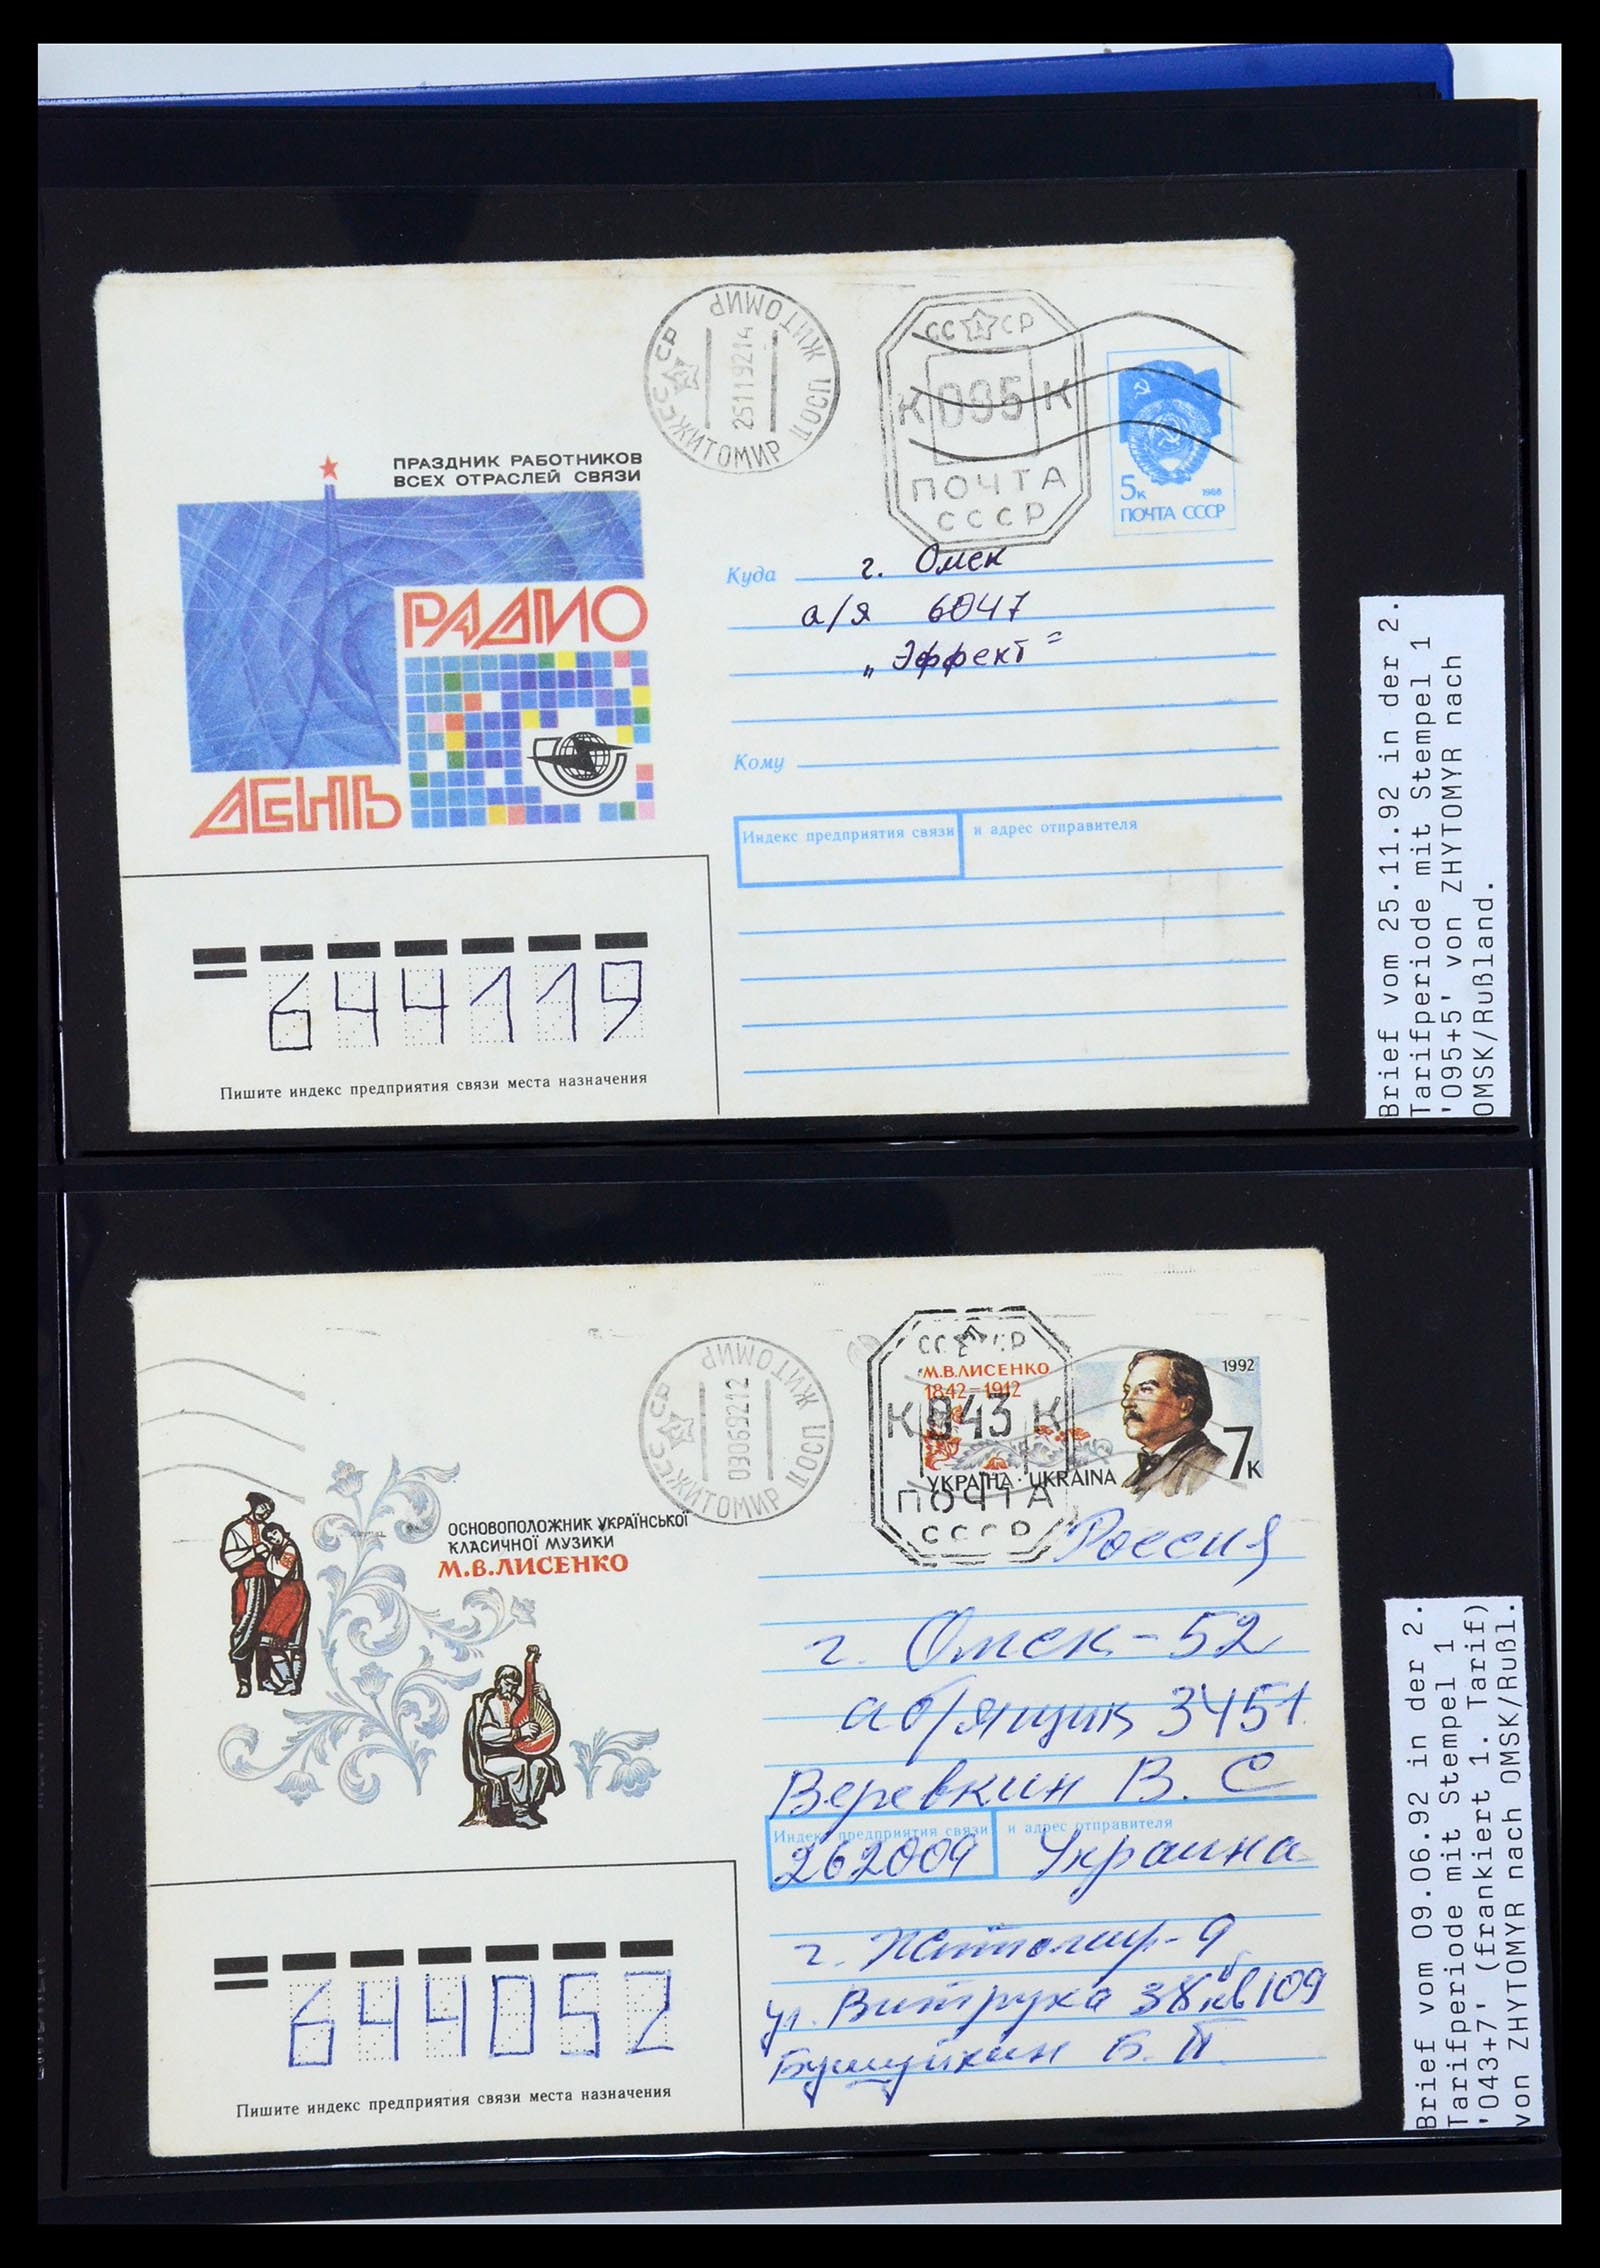 ЖИТОМИР
СССР
25119214
ЖИТОМИР ЦОСП ЖИТОМИР
СССР
К 095 К
ПОЧТА
СССР
5к 1988
ПОЧТА СССР
ПРАЗДНИК РАБОТНИКОВ
ВСЕХ ОТРАСЛЕЙ СВЯЗИ
РАДИО
ДЕНЬ
Куда г. Омск
а/я 6047
„Эффект“
Кому
Индекс предприятия связи и адрес отправителя
644119
Пишите индекс предприятия связи места назначения
Brief vom 25.11.92 in der 2.
Tarifperiode mit Stempel 1
'095+5' von ZHYTOMYR nach
OMSK/Rußland.
СССР
03069212
ЖИТОМИР ЦОСП ЖИТОМИР
СССР
М.В.ЛИСЕНКО
1842-1912
К 043 К
УКРАЇНА · UKRAINA
ПОЧТА
СССР
1992
7к
ОСНОВОПОЛОЖНИК УКРАЇНСЬКОЇ
КЛАСИЧНОЇ МУЗИКИ
М.В.ЛИСЕНКО
Россия
г. Омск-52
аб/ящик 3451
Веревкин В. С
Индекс предприятия связи и адрес отправителя
262009 Украина
г. Житомир-9
ул. Витрука кв 109
Б. П.
644052
Пишите индекс предприятия связи места назначения
Brief vom 09.06.92 in der 2.
Tarifperiode mit Stempel 1
'043+7' (frankiert 1. Tarif)
von ZHYTOMYR nach OMSK/Rußl.